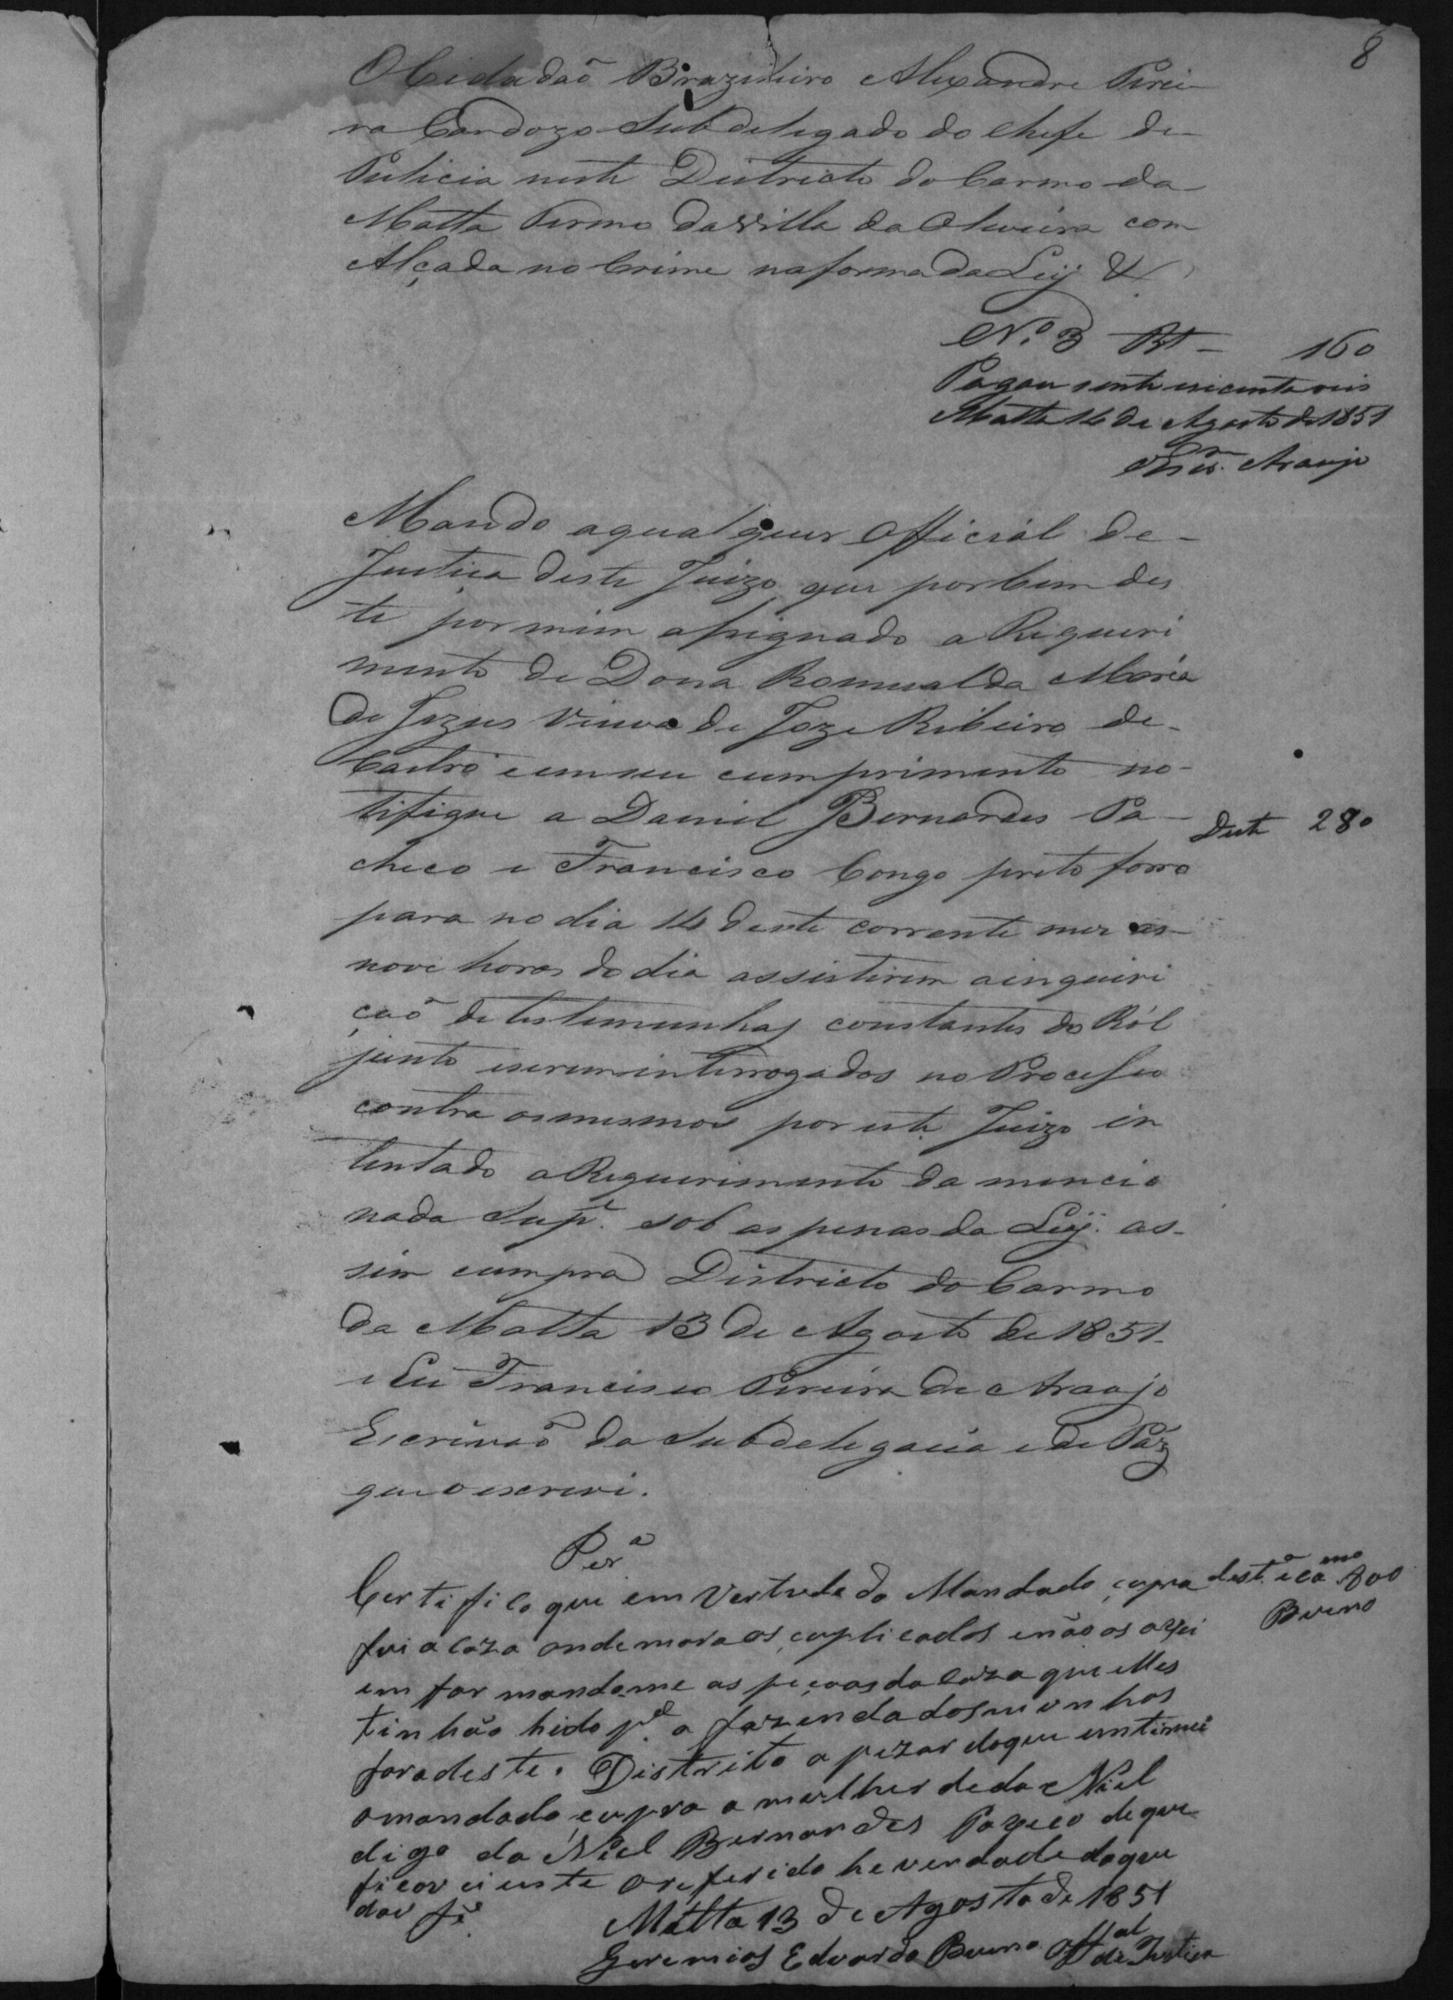 8
O Cidadaõ Brazileiro Alexandre Perei-
ra Cardozo Subdelegado do Chefe de
Pulicia neste Districto do Carmo da
Matta Termo da Villa da Oliveira com
Alçada no Crime na forma da Ley &
N.º 3 Rs - 160
Pagou sento e secenta reis
Matta 14 de Agosto de 1851
Araujo
Mando aqualquer Official de
Justiça deste Juizo que por bem des
te por mim assignado a Requeri
mento de Dona Romualda Maria
de Jezus Viuva de Joze Ribeiro de
Castro e em seu cumprimento no-
tifique a Daniel Bernardes Pa-
checo e Francisco Congo preto forro
Deste 280
para no dia 14 deste corrente mez as
nove horas do dia assistirem a inquiri
çaõ de testemunhas constantes do Ról
junto e serem interrogados no Processo
contra os mesmos por este Juizo in
tentado a Requerimento da mencio
nada Supe. sob as penas da Ley. as-
sim cumpra Districto do Carmo
da Matta 13 de Agosto de 1851.
e Eu Francisco Pereira de Araujo
Escrivaõ da Subdelegacia e de Páz
que o escrevi.
Per.ª
Certifico que em Vertude do Mandado, çupra
dest.ª e cam.º 800
Bueno
fui a Caza onde mora os çuplicados e não os axei
em formandome as peçoas da Caza que elles
tinhão hido pª a fazenda dos muinhos
fora deste. Distrito a pezar do que entimei
o mandado çupra a mulher de da Niel
digo da Niel Bernardes Paxeco de que
ficou ciente o referido he verdade do que
dou fé
Matta 13 de Agosto de 1851
Geremias Eduardo Bueno Offal de Justiça